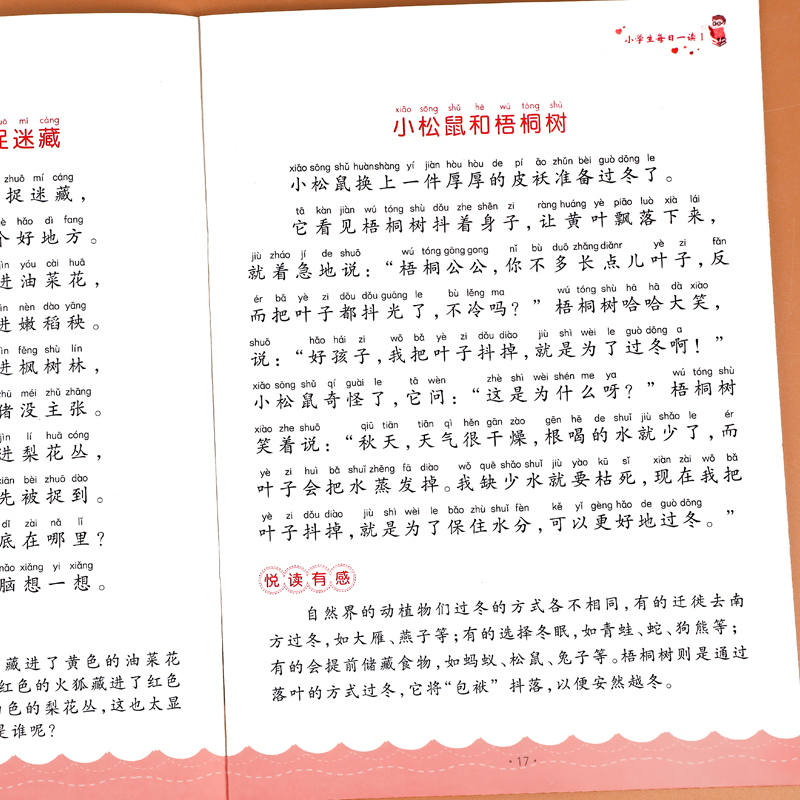 uō mí cáng
捉迷藏
zhuō mí cáng
捉迷藏，
hǎo dì fang
个好地方。
jìn yóu cài huā
进油菜花，
jìn nèn dào yāng
进嫩稻秧。
jìn fēng shù lín
进枫树林，
zhū méi zhǔ zhāng
猪没主张。
jìn lí huā cóng
进梨花丛，
xiān bèi zhuō dào
先被捉到。
dǐ zài nǎ lǐ
底在哪里？
nǎo xiǎng yi xiǎng
脑想一想。
藏进了黄色的油菜花
红色的火狐藏进了红色
色的梨花丛，这也太显
是谁呢？
小学生每日一读1
xiǎo sōng shǔ hé wú tóng shù
小松鼠和梧桐树
xiǎo sōng shǔ huànshàng yí jiàn hòu hòu de pí ǎo zhǔn bèi guò dōng le
小松鼠换上一件厚厚的皮袄准备过冬了。
tā kàn jiàn wú tóng shù dǒu zhe shēn zi ràng huáng yè piāo luò xià lái
它看见梧桐树抖着身子，让黄叶飘落下来，
jiù zháo jí de shuō wú tóng gōng gong nǐ bù duō zhǎng diǎnr yè zi fǎn
就着急地说：“梧桐公公，你不多长点儿叶子，反
ér bǎ yè zi dōu dǒu guāng le bù lěng ma wú tóng shù hā hā dà xiào
而把叶子都抖光了，不冷吗？”梧桐树哈哈大笑，
shuō hǎo hái zi wǒ bǎ yè zi dǒu diào jiù shì wèi le guò dōng a
说：“好孩子，我把叶子抖掉，就是为了过冬啊！”
xiǎo sōng shǔ qí guài le tā wèn zhè shì wèi shén me ya wú tóng shù
小松鼠奇怪了，它问：“这是为什么呀？”梧桐树
xiào zhe shuō qiū tiān tiān qì hěn gān zào gēn hē de shuǐ jiù shǎo le ér
笑着说：“秋天，天气很干燥，根喝的水就少了，而
yè zi huì bǎ shuǐ zhēng fā diào wǒ quē shǎo shuǐ jiù yào kū sǐ xiàn zài wǒ bǎ
叶子会把水蒸发掉。我缺少水就要枯死，现在我把
yè zi dǒu diào jiù shì wèi le bǎo zhù shuǐ fèn kě yǐ gèng hǎo de guò dōng
叶子抖掉，就是为了保住水分，可以更好地过冬。”
悦读有感
自然界的动植物们过冬的方式各不相同，有的迁徙去南
方过冬，如大雁、燕子等；有的选择冬眠，如青蛙、蛇、狗熊等；
有的会提前储藏食物，如蚂蚁、松鼠、兔子等。梧桐树则是通过
落叶的方式过冬，它将“包袱”抖落，以便安然越冬。
·17·